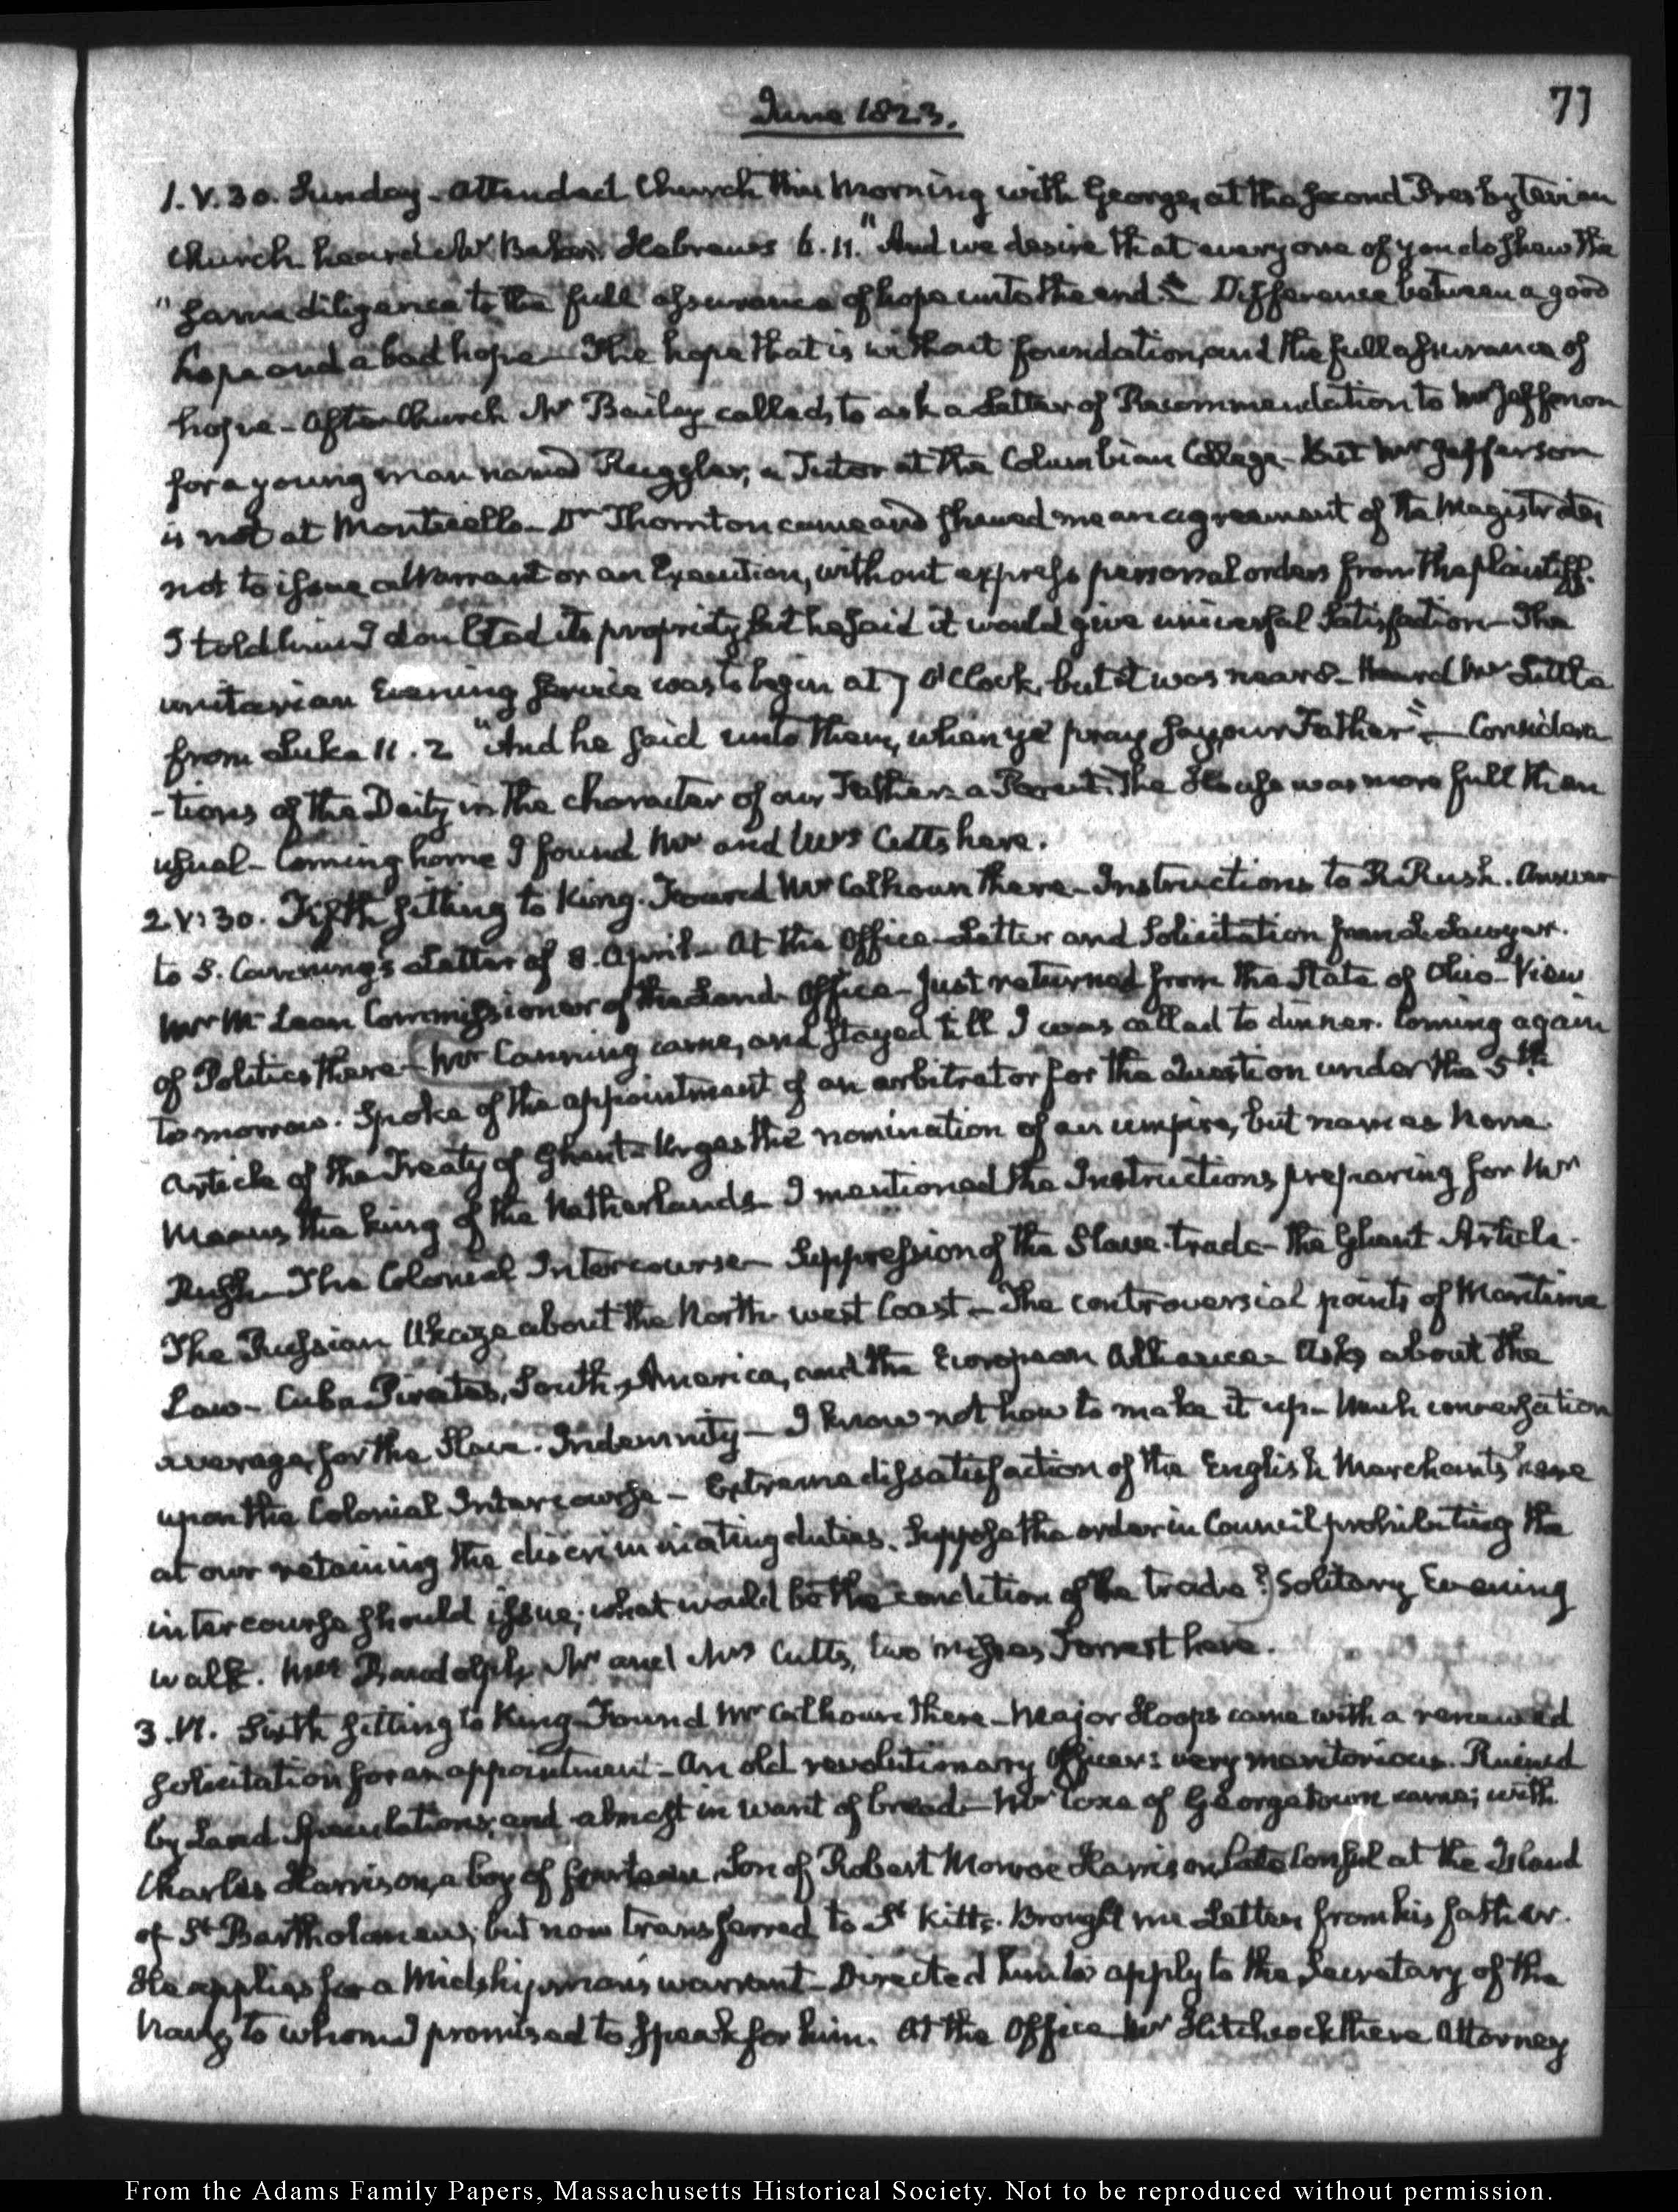 June 1823.
77
1. V. 30. Sunday - Attended Church this Morning with George, at the second Presbyterian
Church heard Mr Baker. Hebrews 6. 11. "And we desire that every one of you do shew the
"same diligence to the full assurance of hope unto the end." Difference between a good
hope and a bad hope - The hope that is without foundation, and the full assurance of
hope - After Church Mr Bailey called, to ask a Letter of Recommendation to Mr Jefferson
for a young man named Ruggles, a Tutor at the Columbian College - But Mr Jefferson
is not at Monticello - Dr Thornton came and shewed me an agreement of the Magistrates
not to issue a Warrant or an Execution, without express personal orders from the plaintiff.
I told him I doubted its propriety but he said it would give universal satisfaction - The
unitarian Evening service was to begin at 7 O'Clock, but it was near 8 - Heard Mr Little
from Luke 11. 2 "And he said unto them, when ye pray say, our Father" - Considera
-tions of the Deity in the character of our Father - a Parent. The House was more full than
usual - Coming home I found Mr and Mrs Cutts here.
2. V: 30. Fifth sitting to King. Found Mr Calhoun there - Instructions to R. Rush. Answer
to S. Canning's Letter of 8. April - At the Office - Letter and Solicitation from Sawyer.
Mr McLean Commissioner of the Land Office - just returned from the State of Ohio - View
of Politics there - Mr Canning came, and stayed till I was called to dinner. Coming again
tomorrow. Spoke of the appointment of an arbitrator for the question under the 5th
Article of the Treaty of Ghent - Urges the nomination of an umpire, but names none.
Means the king of the Netherlands - I mentioned the Instructions preparing for Mr
Rush - The Colonial Intercourse - Suppression of the Slave-trade - the Ghent Article -
The Russian Ukaze about the North west Coast - The controversial points of Maritime
Law - Cuba Pirates, South America, and the European Alliance - Asks about the
average for the Slave Indemnity - I know not how to make it up - Much conversation
upon the Colonial Intercourse - Extreme dissatisfaction of the English Merchants here
at our retaining the discriminating duties. Suppose the order in Council prohibiting the
intercourse should issue; what would be the condition of the trade? Solitary Evening
walk. Mrs Randolph, Mr and Mrs Cutts, two misses Forrest here.
3. VI. Sixth sitting to King - Found Mr Calhoun there - Major Hoops came with a renewed
solicitation for an appointment - An old revolutionary Officer: very meritorious. Ruined
by Land Speculations, and almost in want of bread - Mr Coxe of Georgetown came; with
Charles Harrison, a boy of fourteen, Son of Robert Monroe Harrison late Consul at the Island
of St Bartholomew; but now transferred to St Kitts. Brought me Letters from his father.
He applies for a Midshipman's warrant - Directed him to apply to the Secretary of the
Navy to whom I promised to speak for him. At the Office Mr Hitchcock there Attorney
From the Adams Family Papers, Massachusetts Historical Society. Not to be reproduced without permission.